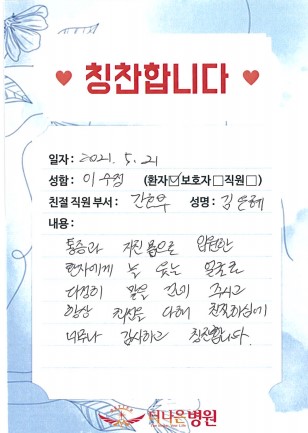 칭찬합니다
일자: 2021. 5. 21
성함: 이수정 (환자☑보호자□직원□)
친절 직원 부서: 간호부 성명: 김은혜
내용:
통증과 지친 몸으로 입원한
환자에게 늘 웃는 얼굴로
다정히 말을 건네 주시고
항상 최선을 다해 친절하심에
너무나 감사하고 칭찬합니다.
더나은병원